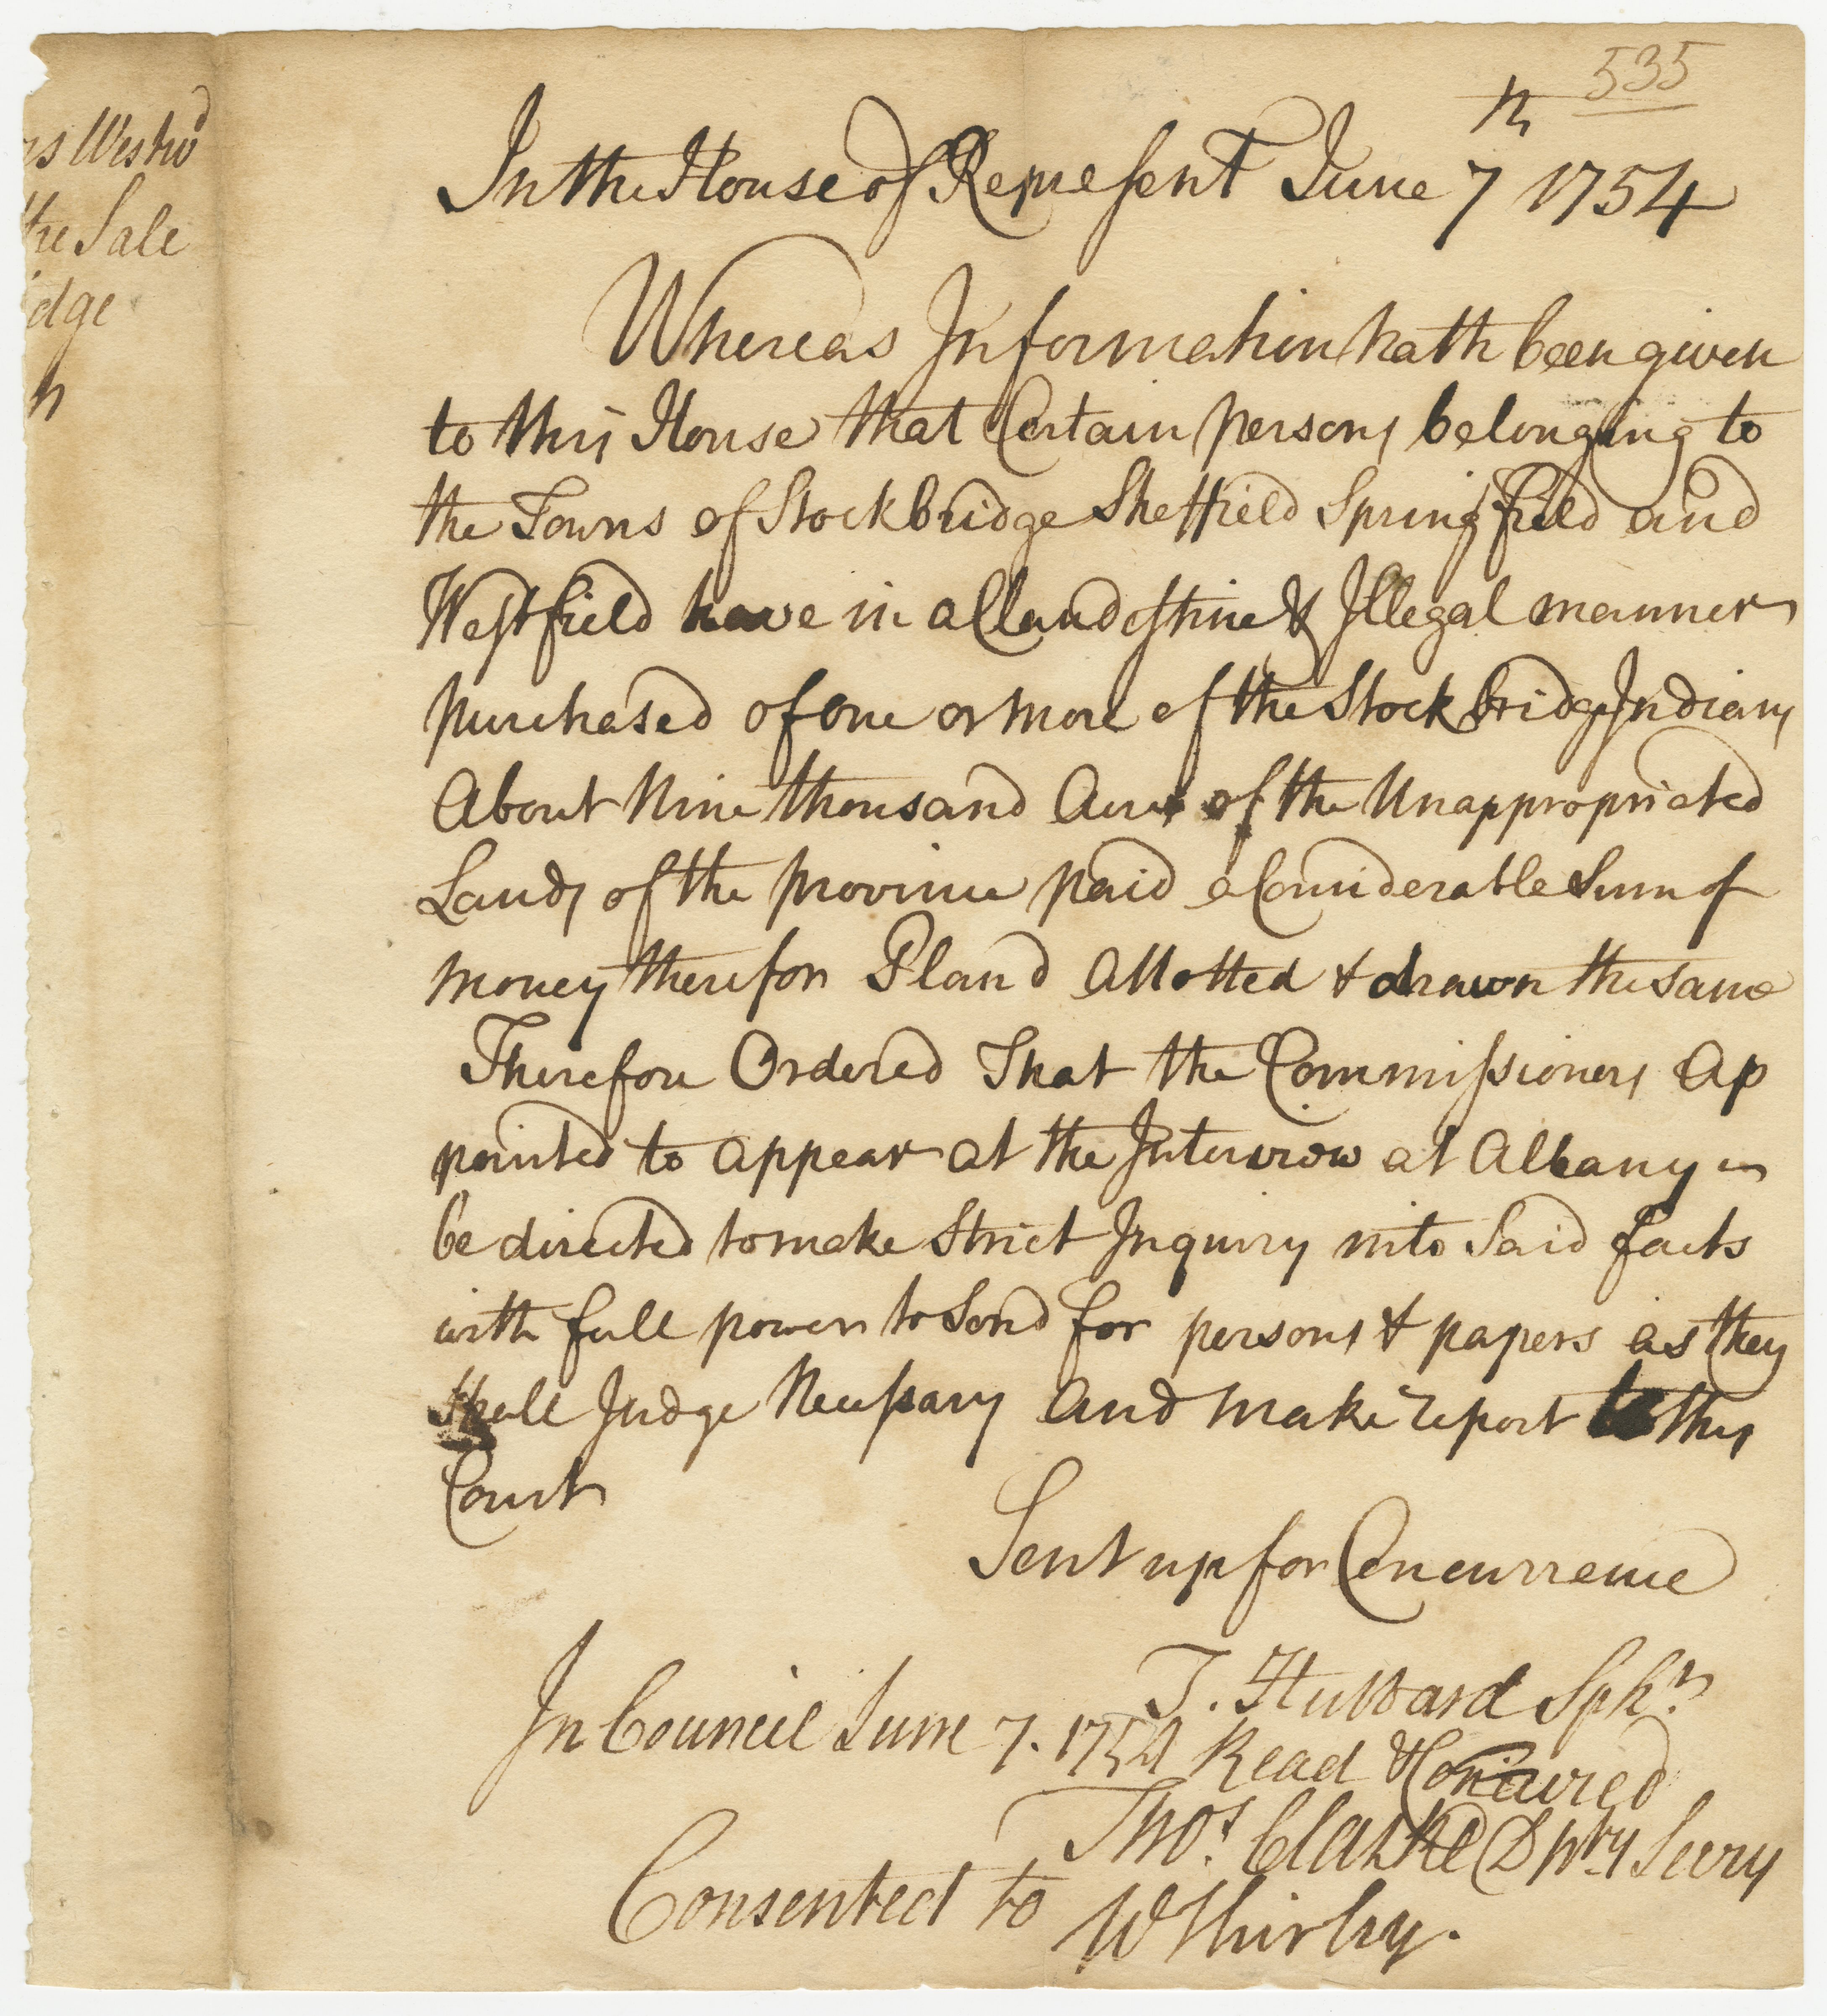 535
In the House of Represent June 7th 1754
Whereas Information hath been given
to this House that Certain persons belonging to
the Towns of Stockbridge Sheffield Springfield and
Westfield have in a Clandestine & Illegal manner
purchased of one or more of the Stockbridge Indians
About Nine thousand Acres of the Unappropriated
Lands of the province paid a Considerable Sum of
money therefor Pland Allotted & drawn the same
Therefore Ordered That the Commissioners Ap
pointed to appear at the Interview at Albany
be directed to make Strict Inquiry into Said facts
with full power to Send for persons & papers as they
Shall Judge Necessary and make report to this
Court
Sent up for Concurrence
T. Hubbard Spkr.
In Council June 7. 1754 Read & Concurred
Thos. Clarke Dpty Secry
Consented to
W Shirley.
Westwd
the Sale
dge